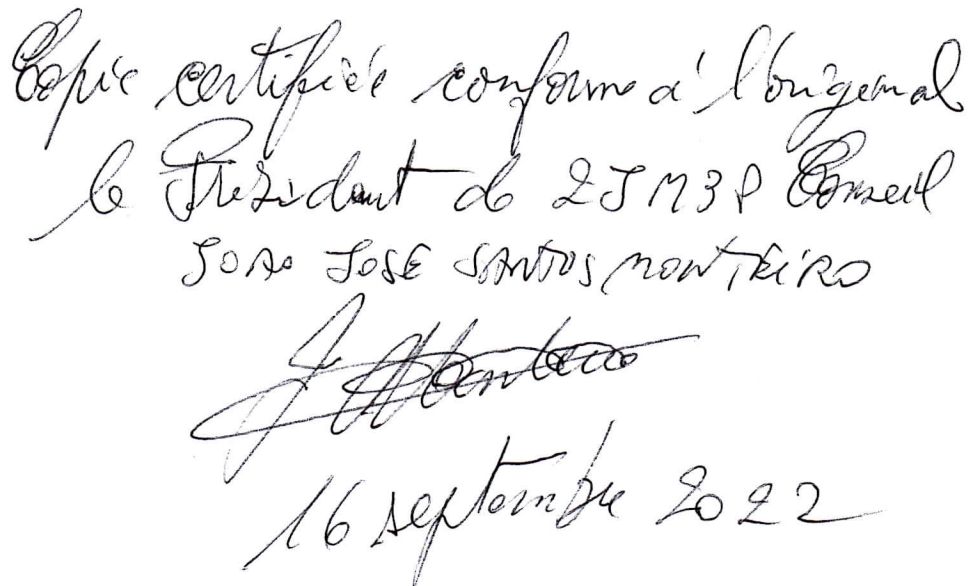 Copie certifiée conforme à l'origemal
le Président de 2JM3P Conseil
JOAO JOSÉ SANTOS MONTEIRO
J Monteiro
16 septembre 2022